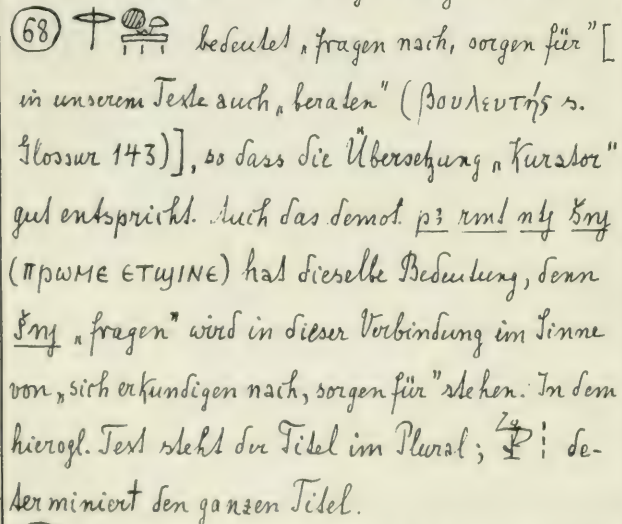 (68) bedeutet „fragen nach, sorgen für" [
in unserem Texte auch „beraten" (βουλευτής s.
Glossar 143)], so dass die Übersetzung „Kurator"
gut entspricht. Auch das demot. p3 rmt ntj šnj
(ⲡⲣⲱⲙⲉ ⲉⲧϣⲓⲛⲉ) hat dieselbe Bedeutung, denn
šnj „fragen" wird in dieser Verbindung im Sinne
von „sich erkundigen nach, sorgen für" stehen. In dem
hierogl. Text steht der Titel im Plural; de-
terminiert den ganzen Titel.